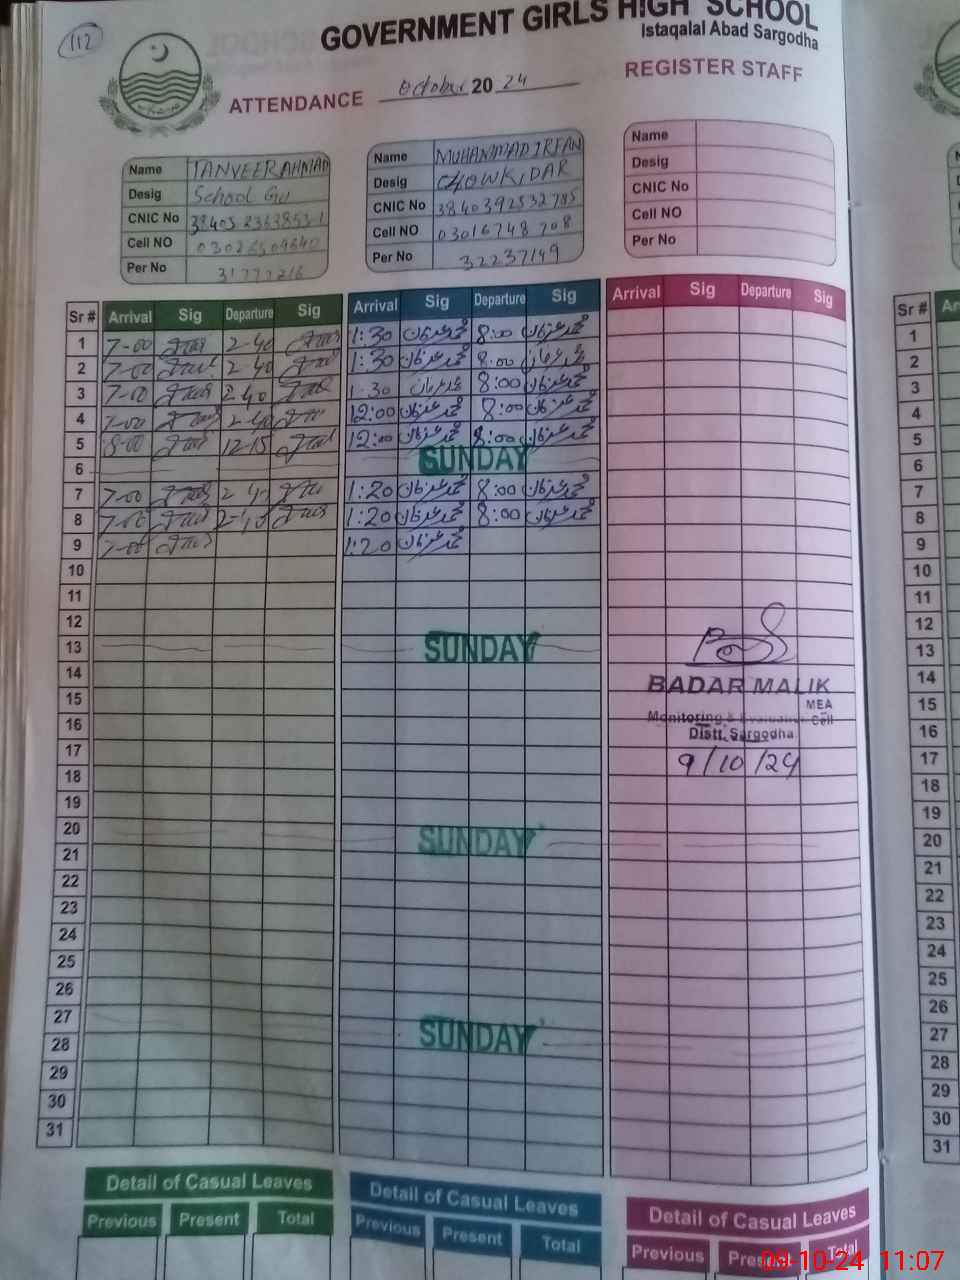 112
GOVERNMENT GIRLS HIGH SCHOOL
Istaqalal Abad Sargodha
ATTENDANCE October 20 24 REGISTER STAFF
Name TANVEER AHMAD
Desig School
CNIC No
Cell NO
Per No
Name MUHAMMAD IRFAN
Desig CHOWKIDAR
CNIC No 3840392532785
Cell NO 03016748708
Per No 32237149
Name
Desig
CNIC No
Cell NO
Per No
Sr # Arrival Sig Departure Sig Arrival Sig Departure Sig Arrival Sig Departure Sig
1 7-00 2-40 1:30 محمد عرفان 8:00 محمد عرفان
2 7-00 2 40 1:30 محمد عرفان 8:00 محمد عرفان
3 7-00 2 40 1-30 محمد عرفان 8:00 محمد عرفان
4 7-00 2-40 12:00 محمد عرفان 8:00 محمد عرفان
5 8-00 12-15 12:00 محمد عرفان 8:00 محمد عرفان
6 SUNDAY
7 7-00 1:20 محمد عرفان 8:00 محمد عرفان
8 7-00 1:20 محمد عرفان 8:00 محمد عرفان
9 7-00 1:20 محمد عرفان
10
11
12
13 SUNDAY
14
BADAR MALIK
15
MEA
16 Monitoring & Evaluation Cell
Distt. Sargodha
17 9/10/24
18
19
20 SUNDAY
21
22
23
24
25
26
27 SUNDAY
28
29
30
31
Detail of Casual Leaves Detail of Casual Leaves Detail of Casual Leaves
Previous Present Total Previous Present Total Previous Present Total
1
2
3
4
5
6
7
8
9
10
11
12
13
14
15
16
17
18
19
20
21
22
23
24
25
26
27
28
29
30
31
09-10-24 11:07